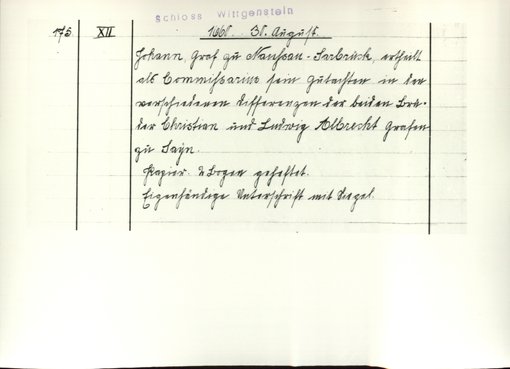 Schloss Wittgenstein
175 XII 1660. 30. August.
Johann, Graf zu Nanssau-Sarbrück, ertheilt
als Commissarius sein Gutachten in den
verschiedenen Differenzen der beiden Brü-
der Christian und Ludwig Albrecht Grafen
zu Sayn.
Papier. Bogen geheftet.
Eigenhändige Unterschrift mit Siegel